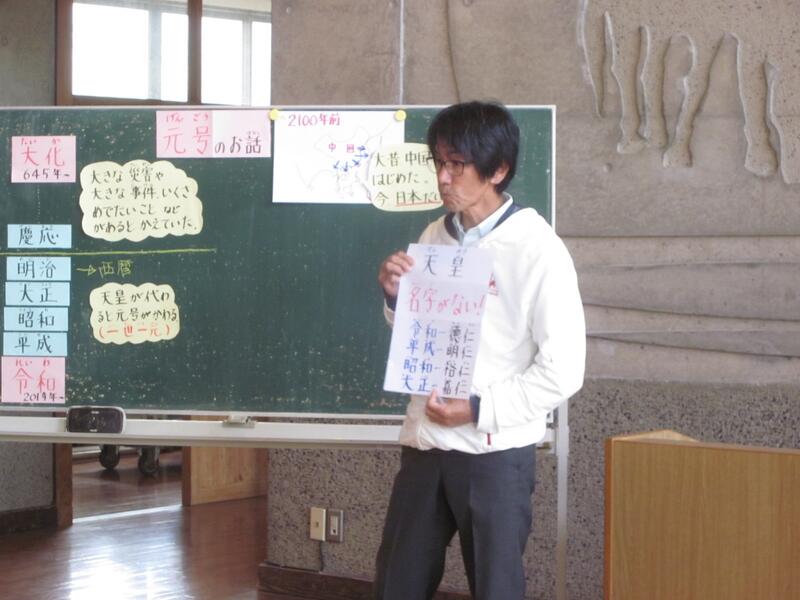 げんごう
元号のお話
たいか
大化
645年~
大きな災害や
大きな事件、いくさ
めでたいことなど
があるとかえていた。
慶応
明治
→西暦
大正
昭和
平成
れいわ
令和
2019年~
天皇が代わ
ると元号がかわる
(一世一元)
2100年前
中国
大昔中国
はじめた。
今日本だ
天皇
名字がない!
令和ー徳仁
平成ー明仁
昭和ー裕仁
大正ー嘉仁